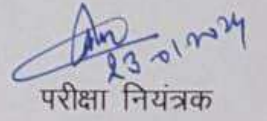 23-01-2024
परीक्षा नियंत्रक